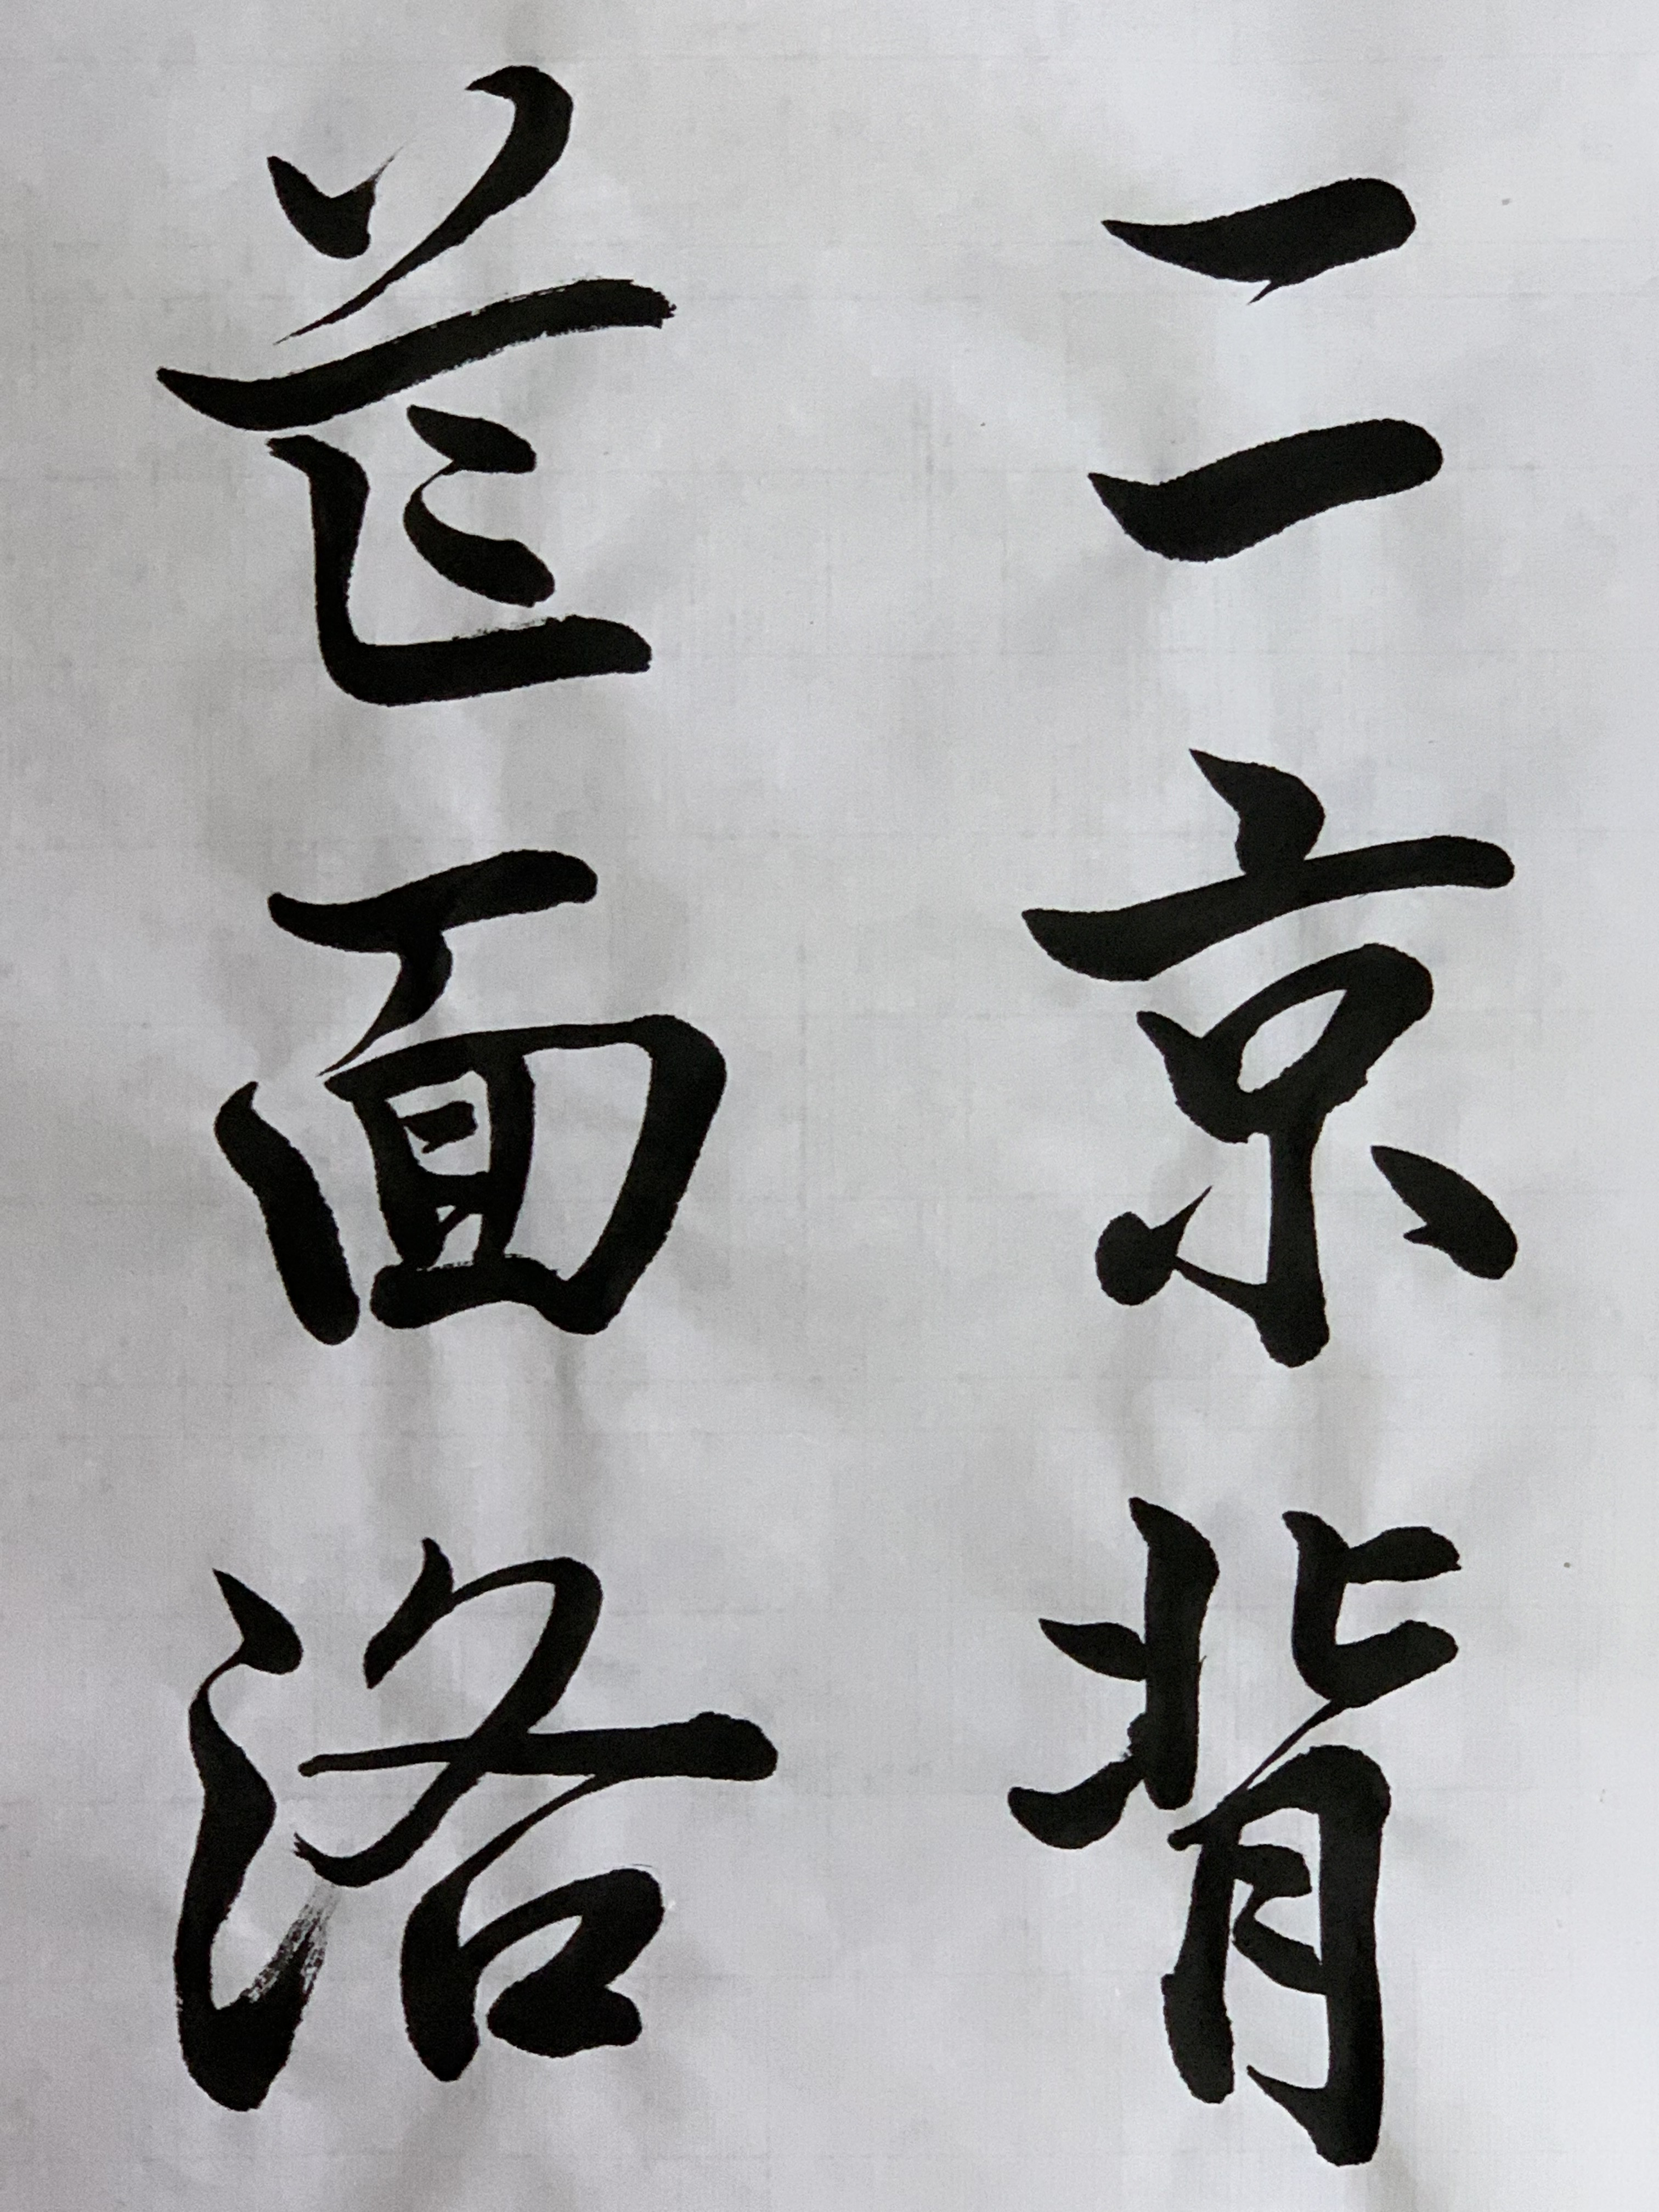 二京背
芒面洛